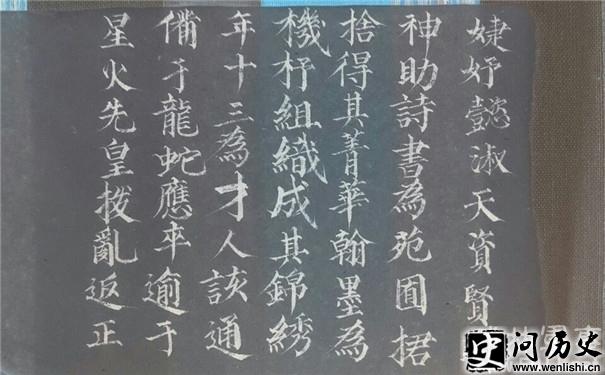 婕妤懿淑天資賢
神助詩書為苑囿捃
捨得其菁華翰墨為
機杼組織成其錦綉
年十三為才人該通
備于龍蛇應卒逾于
星火先皇撥亂返正
史问历史
www.wenlishi.cn